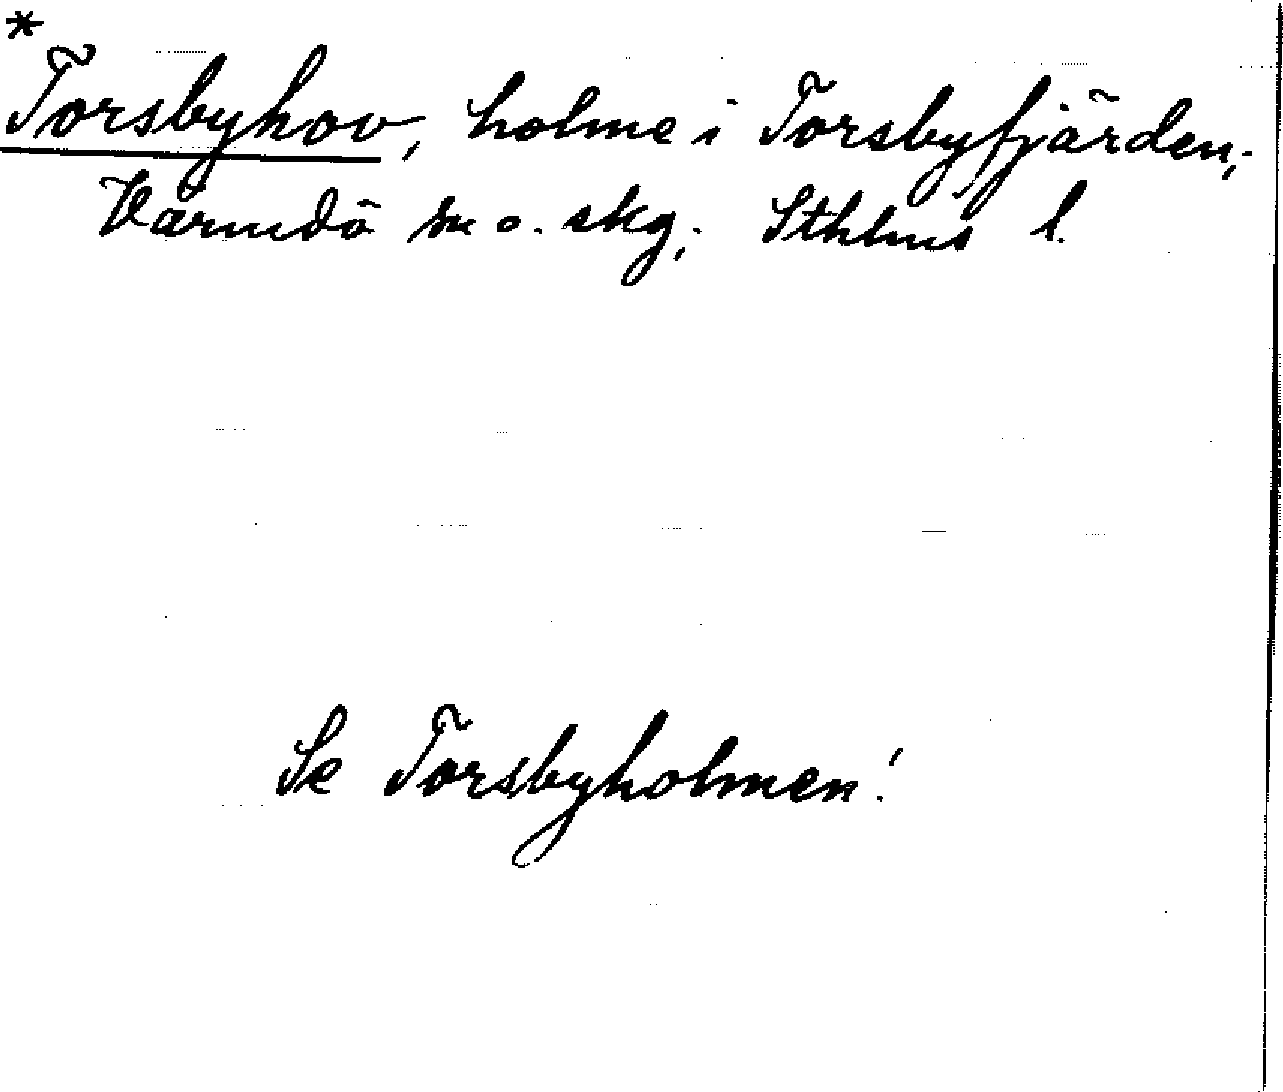 *
Torsbyhov, holme i Torsbyfjärden,
Värmdö sn o. skg, Sthlms l.
Se Torsbyholmen!